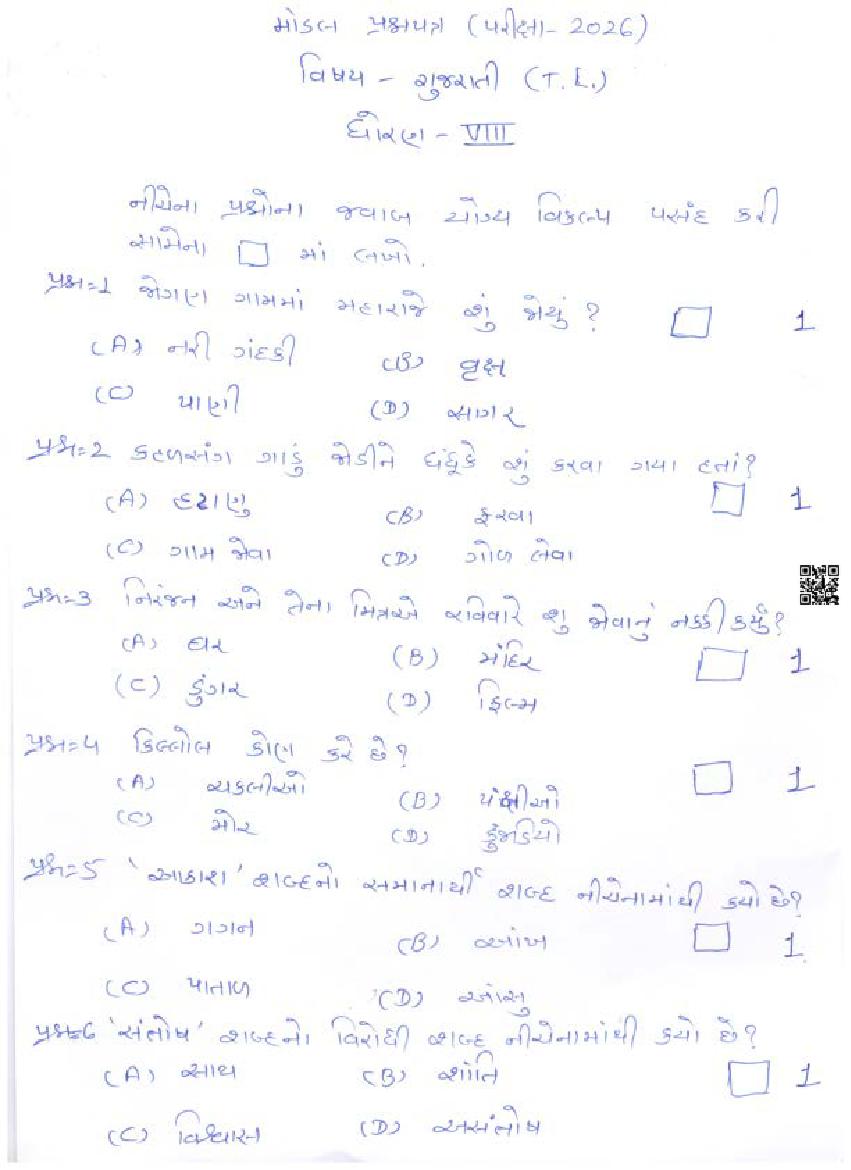 મોડલ પ્રશ્નપત્ર (પરીક્ષા - 2026)
વિષય - ગુજરાતી (T.L.)
ધોરણ - VIII
નીચેના પ્રશ્નોના જવાબ યોગ્ય વિકલ્પ પસંદ કરી
સામેના □ માં લખો.
પ્રશ્ન=1 જોગણ ગામમાં મહારાજે શું જોયું ? □ 1
(A) નરી ગંદકી (B) વૃક્ષ
(C) પાણી (D) સાગર
પ્રશ્ન:-2 કહળસંગ ગાડું જોડીને ધંધૂકે શું કરવા ગયા હતાં?
(A) હટાણુ (B) ફરવા □ 1
(C) ગામ જોવા (D) ગોળ લેવા
પ્રશ્ન=3 નિરંજન અને તેના મિત્રએ રવિવારે શુ જોવાનું નક્કી કર્યું?
(A) ઘર (B) મંદિર □ 1
(C) ડુંગર (D) ફિલ્મ
પ્રશ્ન=૫ કિલ્લોલ કોણ કરે છે?
(A) ચકલીઓ (B) પંક્ષીઓ □ 1
(C) મોર (D) કુંજડિયો
પ્રશ્ન=5 'આકાશ' શબ્દનો સમાનાર્થી શબ્દ નીચેનામાંથી કયો છે?
(A) ગગન (B) આંખ □ 1
(C) પાતાળ (D) આંસુ
પ્રશ્ન=6 'સંતોષ' શબ્દનો વિરોધી શબ્દ નીચેનામાંથી કયો છે?
(A) સાથ (B) શાંતિ □ 1
(C) વિશ્વાસ (D) અસંતોષ